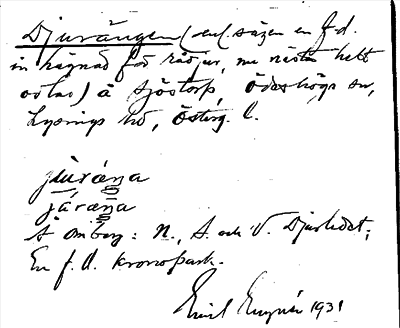 Djurängen (enl. sägen en f.d.
inhägnad för rådjur, nu nästan helt
odlad) å Sjöstorp, Ödeshögs sn,
Lysings hd, Österg. l.
jṳ̀rǽŋa
jɑ́ræŋa
S om berg: N., S. och V. Djurledet;
En f.d. kronopark.
Emil 1931